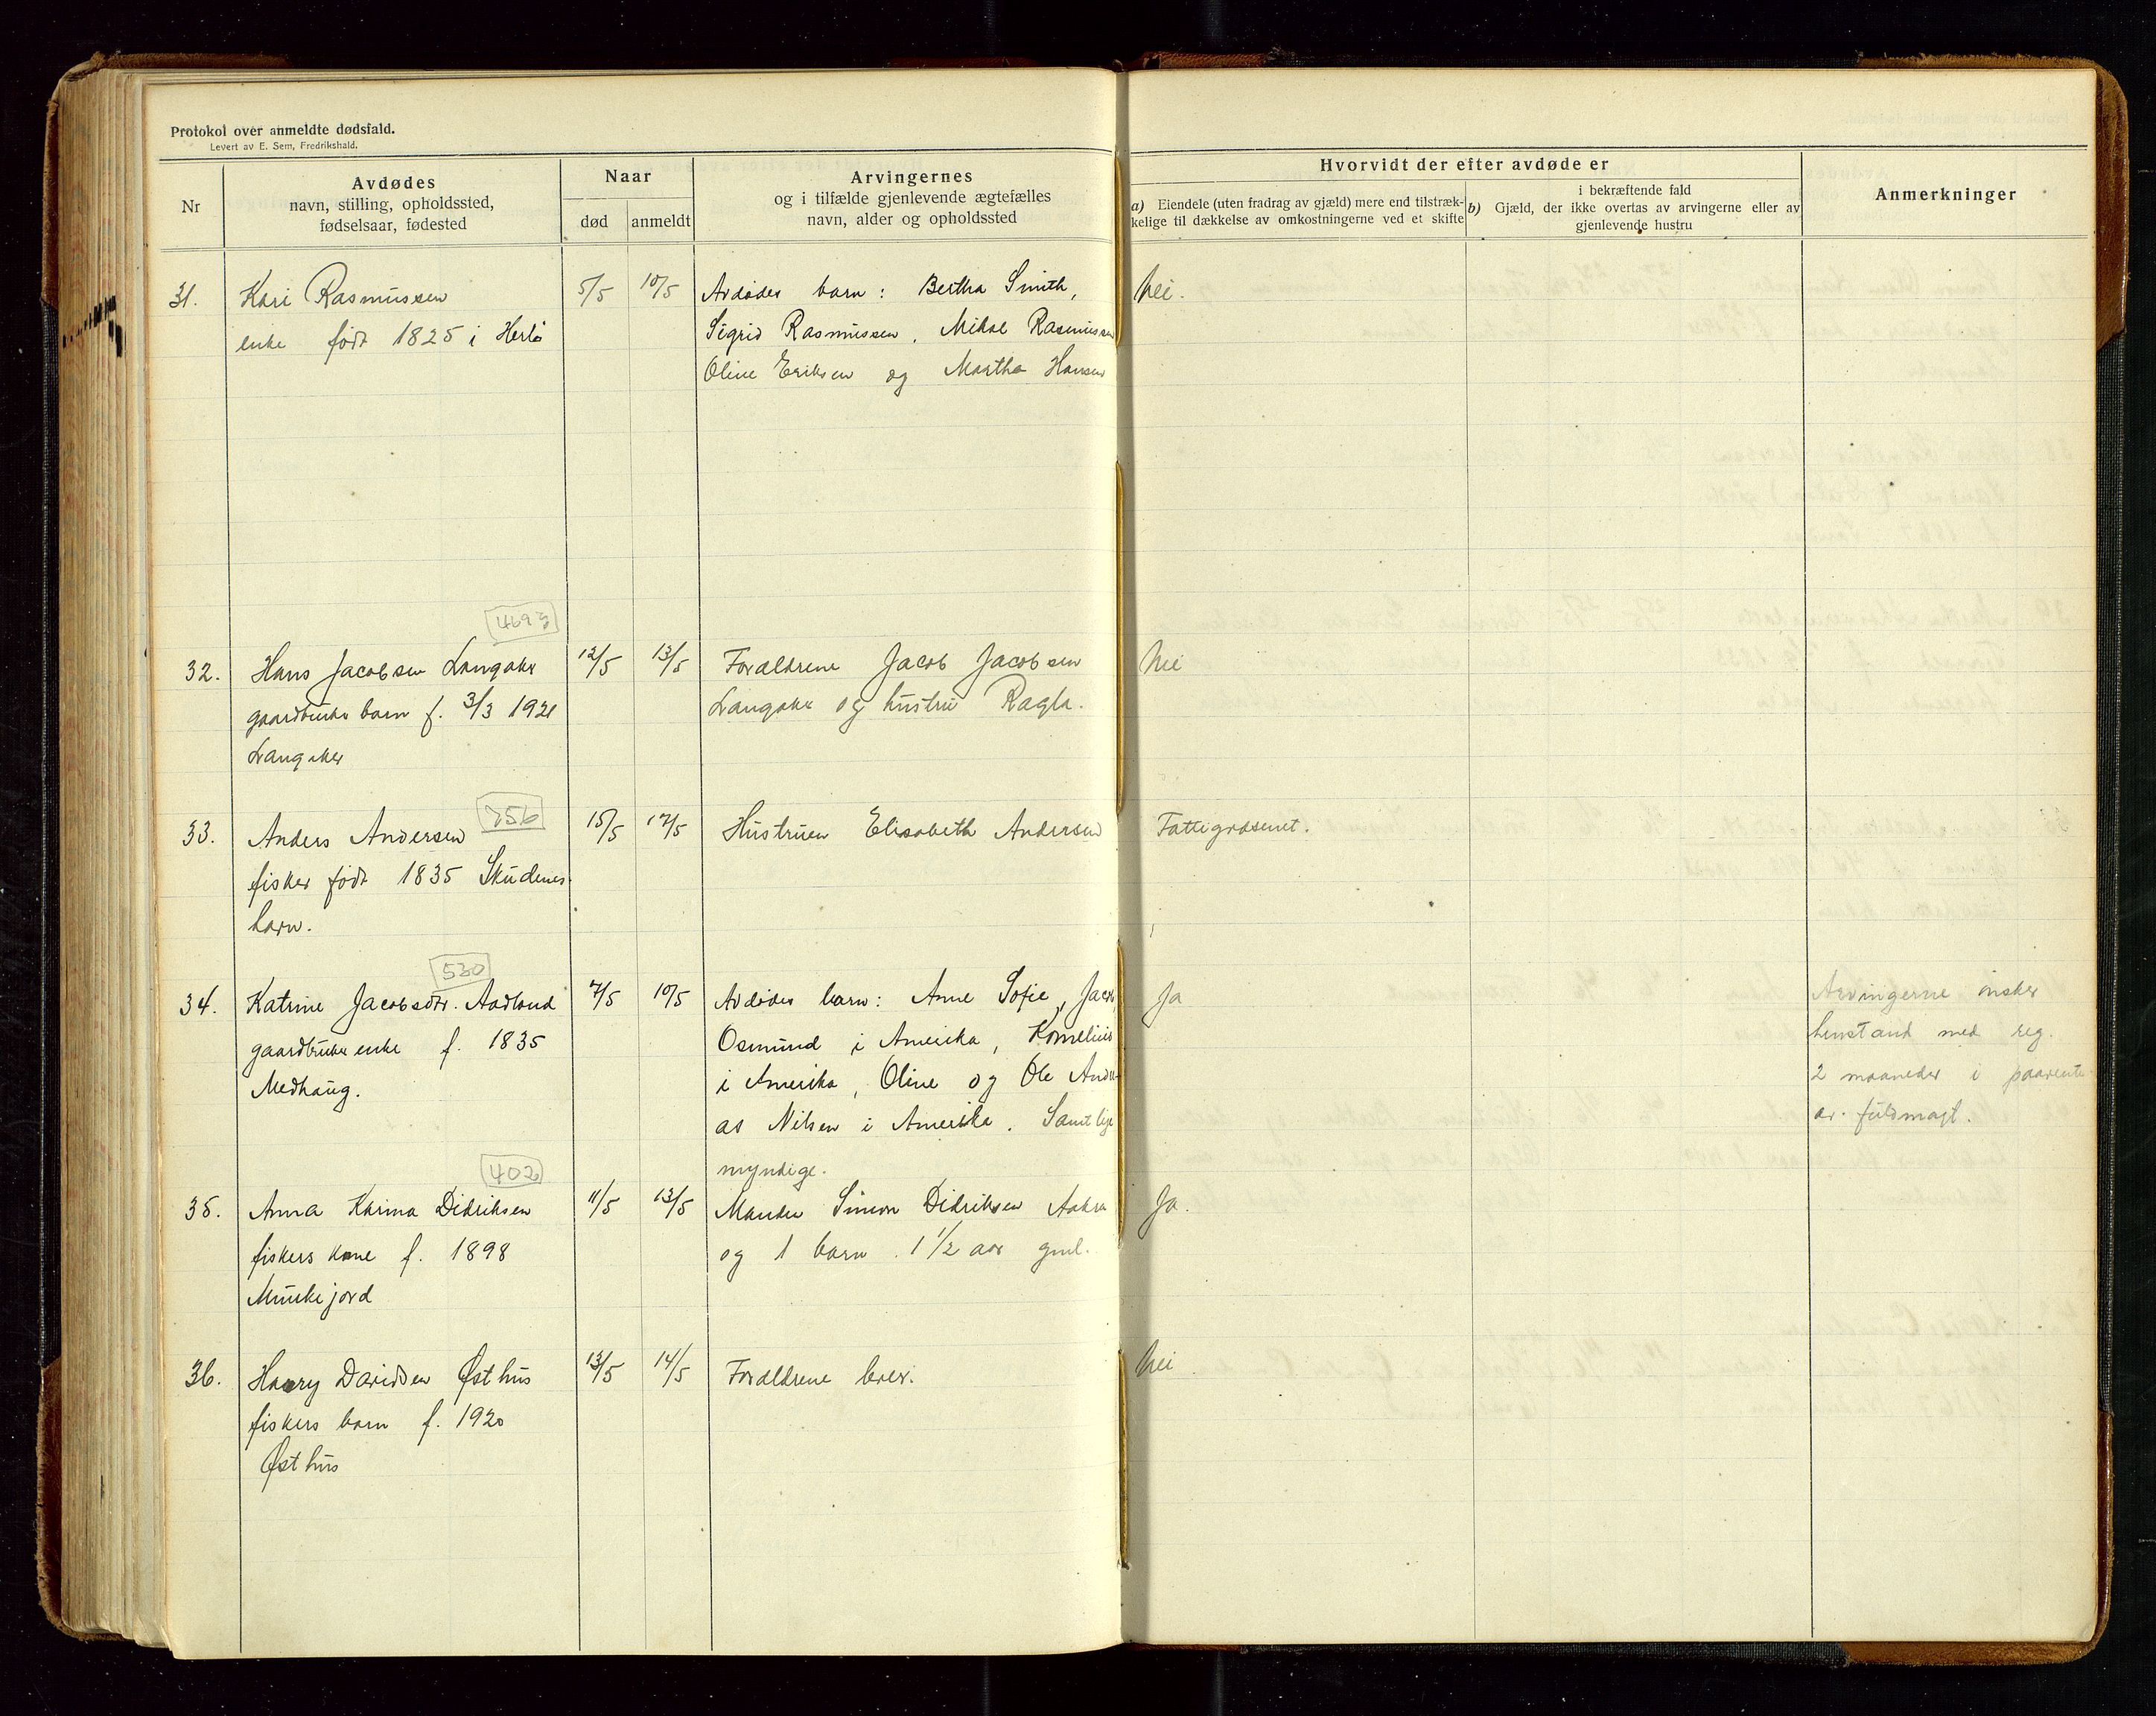 Protokol over anmeldte dødsfald.
Levert av E. Sem, Fredrikshald.
Nr
Avdødes
navn, stilling, opholdssted,
fødselsaar, fødested
Naar
død
anmeldt
Arvingernes
og i tilfælde gjenlevende ægtefælles
navn, alder og opholdssted
Hvorvidt der efter avdøde er
a) Eiendele (uten fradrag av gjæld) mere end tilstræk-
kelige til dækkelse av omkostningerne ved et skifte
i bekræftende fald
b) Gjæld, der ikke overtas av arvingerne eller av
gjenlevende hustru
Anmerkninger
31.
Kari Rasmussen
enke født 1825 i Herlø
5/5
10/5
Avdødes barn: Bertha Smith,
Sigrid Rasmussen, Mikal Rasmussen
Oline Eriksen og Martha Hansen
Nei.
4693
32.
Hans Jacobsen Langaker
gaardbruker barn f. 3/3 1921
Langaker
12/5
13/5
Forældrene Jacob Jacobsen
Langaker og hustru Ragla.
Nei
756
33.
Anders Andersen
fisker født 1835 Skudenes-
havn.
15/5
17/5
Hustruen Elisabeth Andersen
Fattigvæsenet.
530
34.
Katrine Jacobsdtr. Aadland
gaardbruker enke f. 1835
Medhaug.
7/5
10/5
Avdødes barn: Anne Sofie, Jacob,
Osmund i Amerika, Kornelius
i Amerika, Oline og Ole Andre-
as Nilsen i Amerika. Samtlige
myndige.
Ja
Arvingerne ønsker
henstand med reg.
2 maaneder i paavente
av fuldmagt.
402
35.
Anna Karina Didriksen
fiskers kone f. 1898
Munkejord
11/5
13/5
Manden Simon Didriksen Aakra
og 1 barn 1 1/2 aar gml.
Ja.
36.
Harry Davidsen Østhus
fiskers barn f. 1920
Østhus
13/5
14/5
Forældrene lever.
Nei